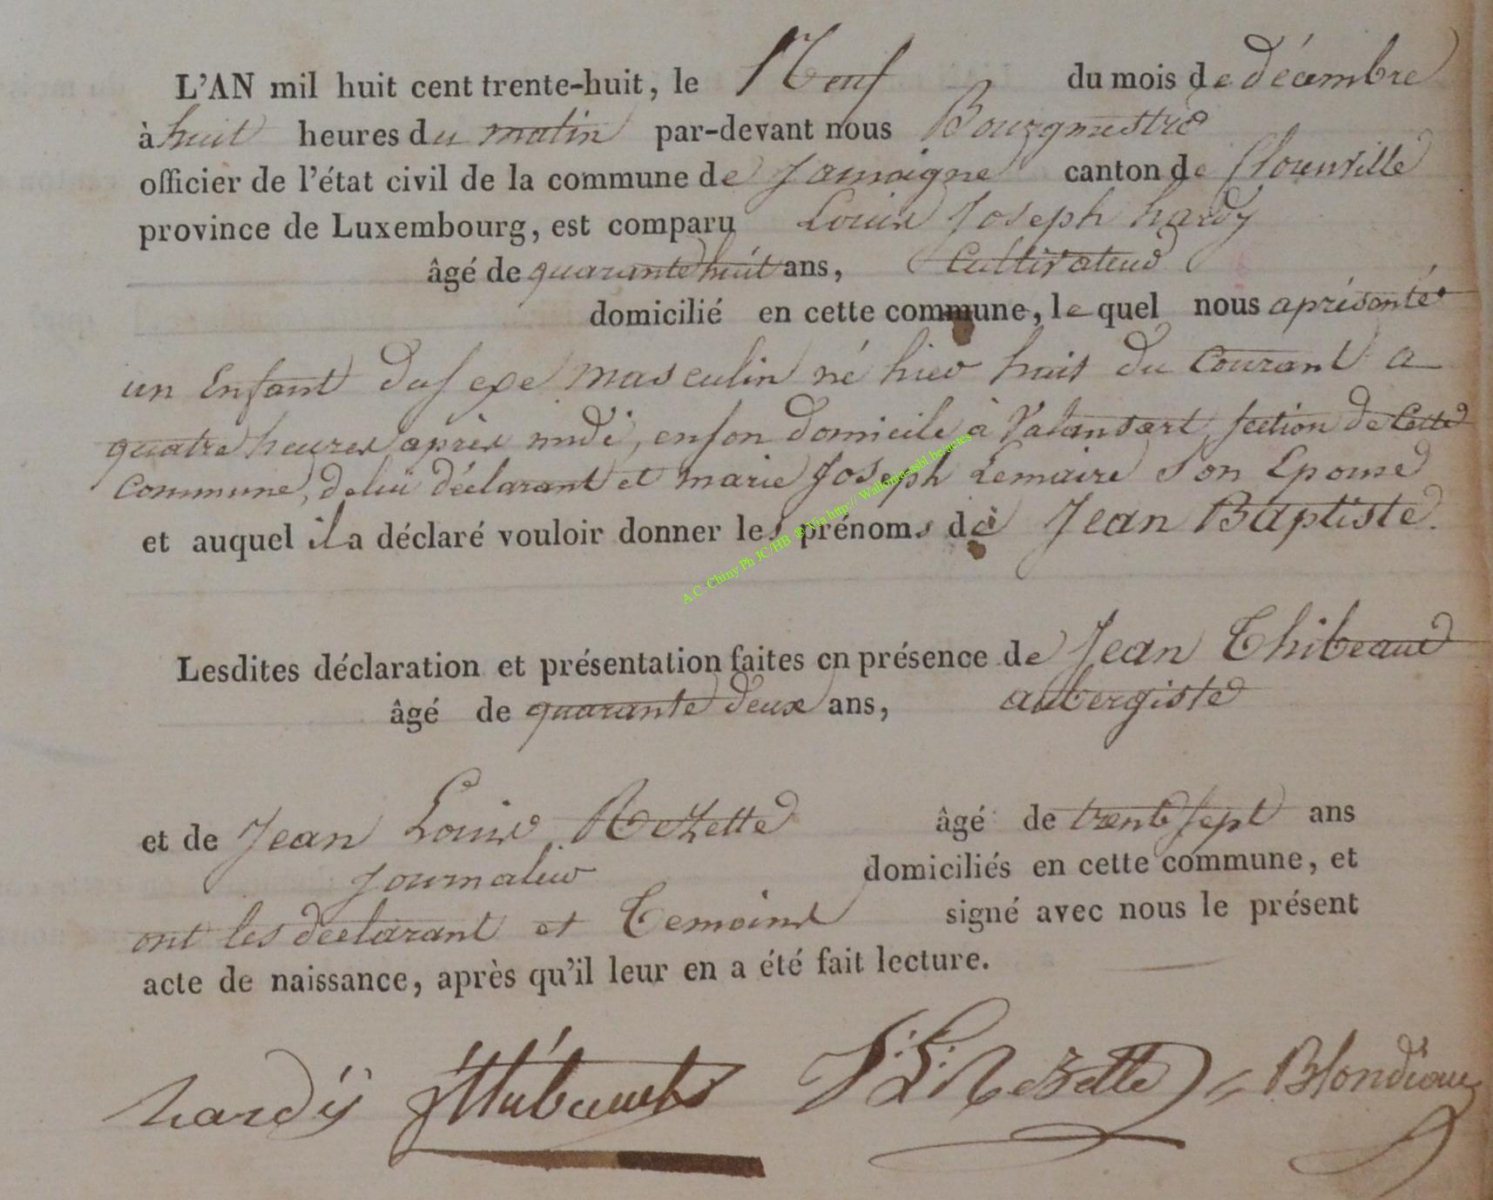 L'AN mil huit cent trente-huit, le Neuf du mois de décembre
à huit heures du matin par-devant nous Bourgmestre
officier de l'état civil de la commune de Jamoigne canton de florenville
province de Luxembourg, est comparu Louis Joseph hardy
âgé de quarante huit ans, Cultivateur
domicilié en cette commune, le quel nous a présenté
un Enfant du sexe masculin né hier huit du Courant a
quatre heures après midi, en son domicile à Valansart, section de Cette
Commune, de lui déclarant et marie Joseph Lemaire son Epouse
et auquel il a déclaré vouloir donner les prénoms de Jean Baptiste.
A.C. Chiny Ph JC/HB © Via http://
Lesdites déclaration et présentation faites en présence de Jean Thibeaud
âgé de quarante deux ans, aubergiste
et de Jean Louis Rezette âgé de trente sept ans
journalier domiciliés en cette commune, et
ont les déclarant et Temoins signé avec nous le présent
acte de naissance, après qu'il leur en a été fait lecture.
hardÿ J. L. Rezette Blondiau